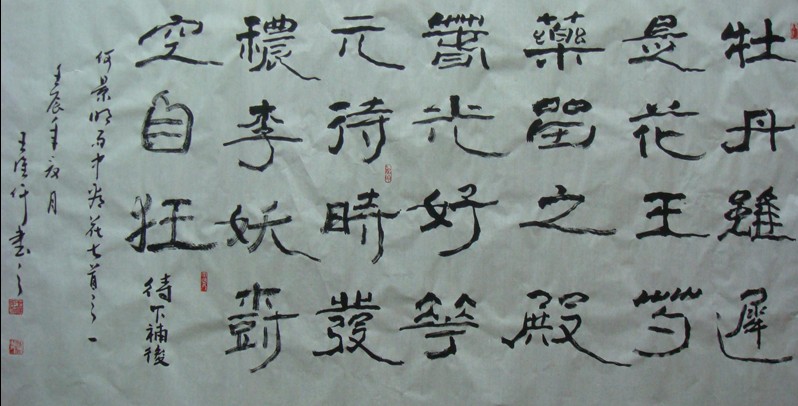 牡丹雖遲
是花王芍
藥留之殿
萅光好華
元待時發
穠李妖
空自狂
待下補後
何景明雨中看花七首之一
壬辰年夏月
王 書